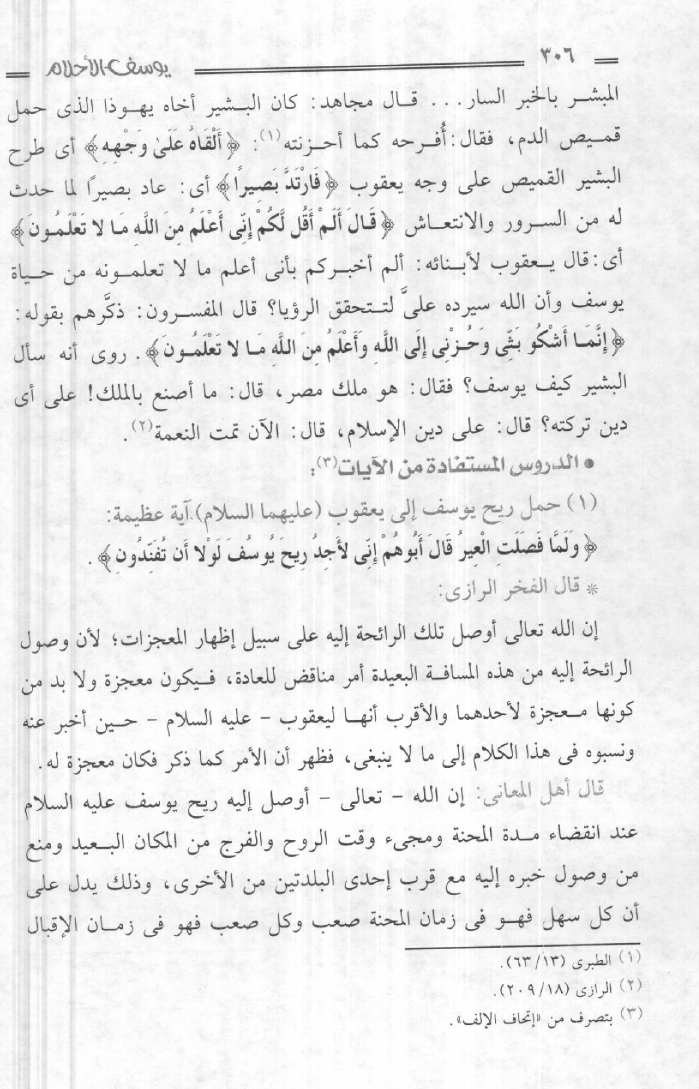 ٣٠٦
يوسف الأحلام
المبشر بالخبر السار... قال مجاهد: كان البشير أخاه يهوذا الذى حمل
قميص الدم، فقال: أُفرحه كما أحزنته(١): ﴿أَلْقَاهُ عَلَىٰ وَجْهِهِ﴾ أى طرح
البشير القميص على وجه يعقوب ﴿فَارْتَدَّ بَصِيرًا﴾ أى: عاد بصيرًا لما حدث
له من السرور والانتعاش ﴿قَالَ أَلَمْ أَقُل لَّكُمْ إِنِّى أَعْلَمُ مِنَ اللَّهِ مَا لا تَعْلَمُونَ﴾
أى: قال يعقوب لأبنائه: ألم أخبركم بأنى أعلم ما لا تعلمونه من حياة
يوسف وأن الله سيرده علىَّ لتتحقق الرؤيا؟ قال المفسرون: ذكَّرهم بقوله:
﴿إِنَّمَا أَشْكُو بَثِّى وَحُزْنِى إِلَى اللَّهِ وَأَعْلَمُ مِنَ اللَّهِ مَا لا تَعْلَمُونَ﴾. روى أنه سأل
البشير كيف يوسف؟ فقال: هو ملك مصر، قال: ما أصنع بالملك! على أى
دين تركته؟ قال: على دين الإسلام، قال: الآن تمت النعمة(٢).
• الدروس المستفادة من الآيات(٣):
(١) حمل ريح يوسف إلى يعقوب (عليهما السلام) آية عظيمة:
﴿وَلَمَّا فَصَلَتِ الْعِيرُ قَالَ أَبُوهُمْ إِنِّى لأَجِدُ رِيحَ يُوسُفَ لَوْلا أَن تُفَنِّدُونِ﴾.
* قال الفخر الرازى:
إن الله تعالى أوصل تلك الرائحة إليه على سبيل إظهار المعجزات؛ لأن وصول
الرائحة إليه من هذه المسافة البعيدة أمر مناقض للعادة، فيكون معجزة ولا بد من
كونها معجزة لأحدهما والأقرب أنها ليعقوب - عليه السلام - حين أخبر عنه
ونسبوه فى هذا الكلام إلى ما لا ينبغى، فظهر أن الأمر كما ذكر فكان معجزة له.
قال أهل المعانى: إن الله - تعالى - أوصل إليه ريح يوسف عليه السلام
عند انقضاء مدة المحنة ومجىء وقت الروح والفرج من المكان البعيد ومنع
من وصول خبره إليه مع قرب إحدى البلدتين من الأخرى، وذلك يدل على
أن كل سهل فهو فى زمان المحنة صعب وكل صعب فهو فى زمان الإقبال
(١) الطبرى (١٣/ ٦٣).
(٢) الرازى (١٨/ ٢٠٩).
(٣) بتصرف من «إتحاف الإلف».